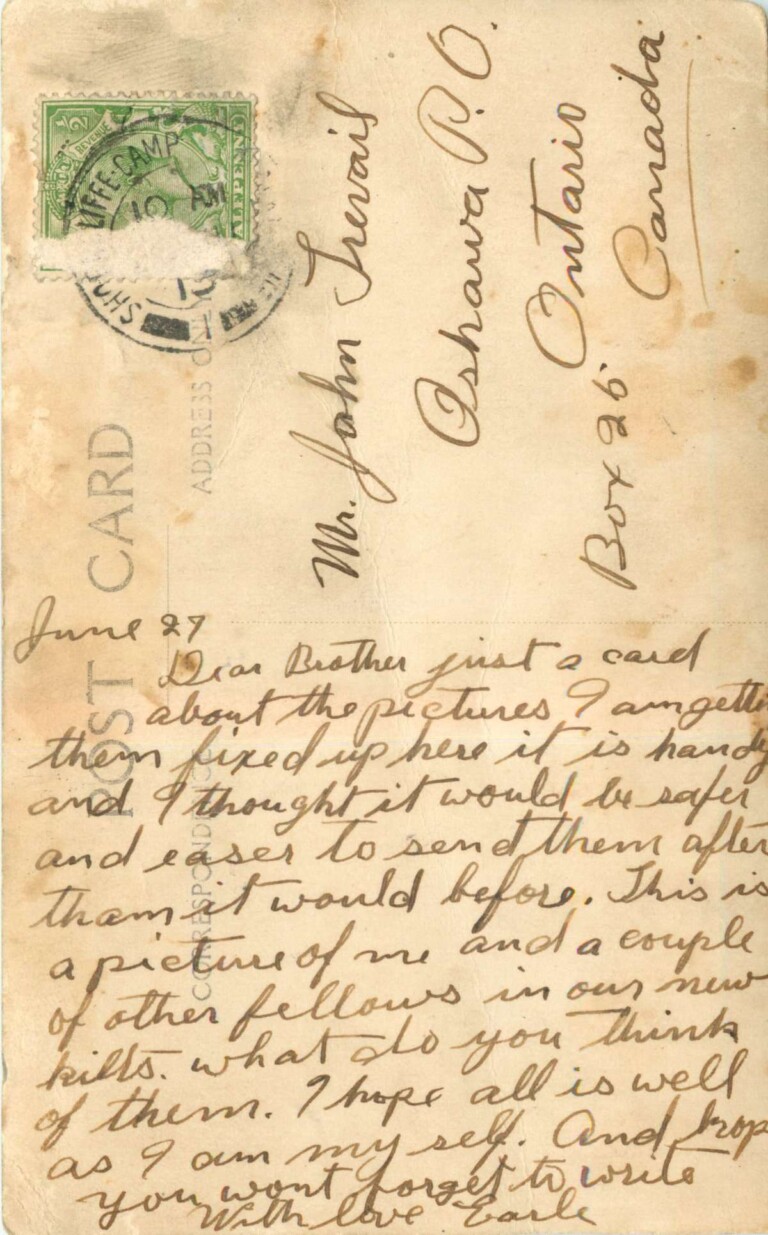 POST CARD
ADDRESS ON
CORRESPONDENCE
½
REVENUE
HALFPENNY
SHO LIFFE-CAMP
10 AM
15
1
Mr. John Trevail
Oshawa P.O.
Ontario
Box 25 Canada
June 27
Dear Brother just a card
about the pictures I am getti
them fixed up here it is handy
and I thought it would be safer
and easer to send them after
than it would before. This is
a picture of me and a couple
of other fellows in our new
kilts. what do you think
of them. I hope all is well
as I am my self. And hop
you wont forget to write
With love Earle